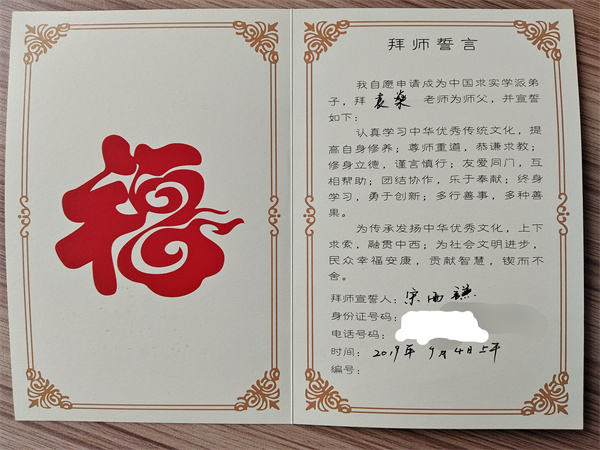 福
拜师誓言
我自愿申请成为中国求实学派弟
子，拜 袁 老师为师父，并宣誓
如下：
认真学习中华优秀传统文化，提
高自身修养；尊师重道，恭谦求教；
修身立德，谨言慎行；友爱同门，互
相帮助；团结协作，乐于奉献；终身
学习，勇于创新；多行善事，多种善
果。
为传承发扬中华优秀文化，上下
求索，融贯中西；为社会文明进步，
民众幸福安康，贡献智慧，锲而不
舍。
拜师宣誓人：宋
身份证号码：
电话号码：
时间：2019年9月4日上午
编号：